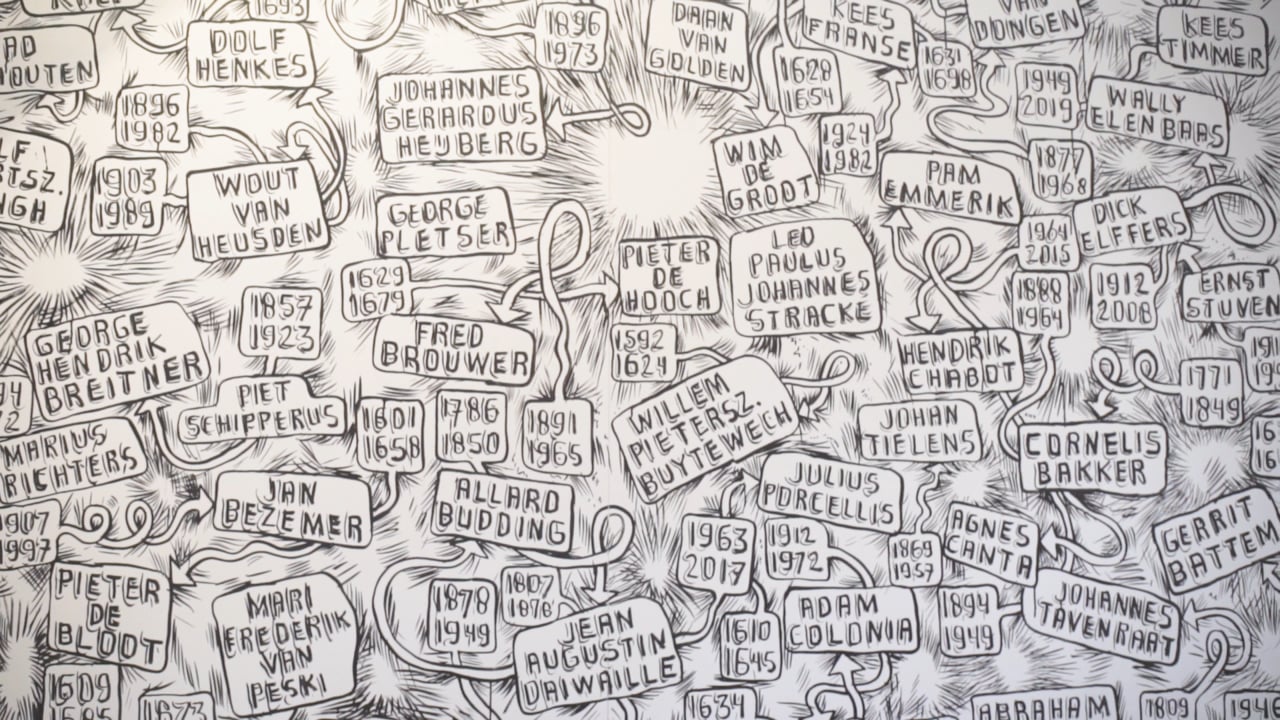 1693
1896
1973
DAAN
VAN
GOLDEN
KEES
FRANSE
VAN
DONGEN
KEES
TIMMER
DOLF
HENKES
1896
1982
JOHANNES
GERARDUS
HEYBERG
1628
1654
1631
1698
1949
2019
WALLY
ELENBAAS
1903
1989
WOUT
VAN
HEUSDEN
GEORGE
PLETSER
WIM
DE
GROOT
1924
1982
PAM
EMMERIK
1877
1968
DICK
ELFFERS
1629
1679
PIETER
DE
HOOCH
LEO
PAULUS
JOHANNES
STRACKE
1964
2015
1888
1964
1912
2008
ERNST
STUVEN
GEORGE
HENDRIK
BREITNER
1857
1923
FRED
BROUWER
1592
1624
HENDRIK
CHABOT
1771
1849
PIET
SCHIPPERUS
1601
1658
1786
1850
1891
1965
WILLEM
PIETERSZ.
BUYTEWECH
JOHAN
TIELENS
CORNELIS
BAKKER
MARIUS
RICHTERS
JAN
BEZEMER
ALLARD
BUDDING
JULIUS
PORCELLIS
AGNES
CANTA
GERRIT
BATTEM
1907
1997
1963
2017
1912
1972
1869
1957
PIETER
DE
BLOOT
MARI
FREDERIK
VAN
PESKI
1878
1949
1807
1878
JEAN
AUGUSTIN
DAIWAILLE
1610
1645
ADAM
COLONIA
1894
1949
JOHANNES
TAVENRAAT
1609
1673
1634
ABRAHAM
1809